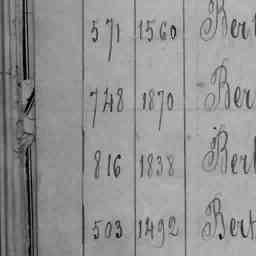 571 1560 Bert
748 1870 Ber
816 1838 Berl
503 1492 Bert